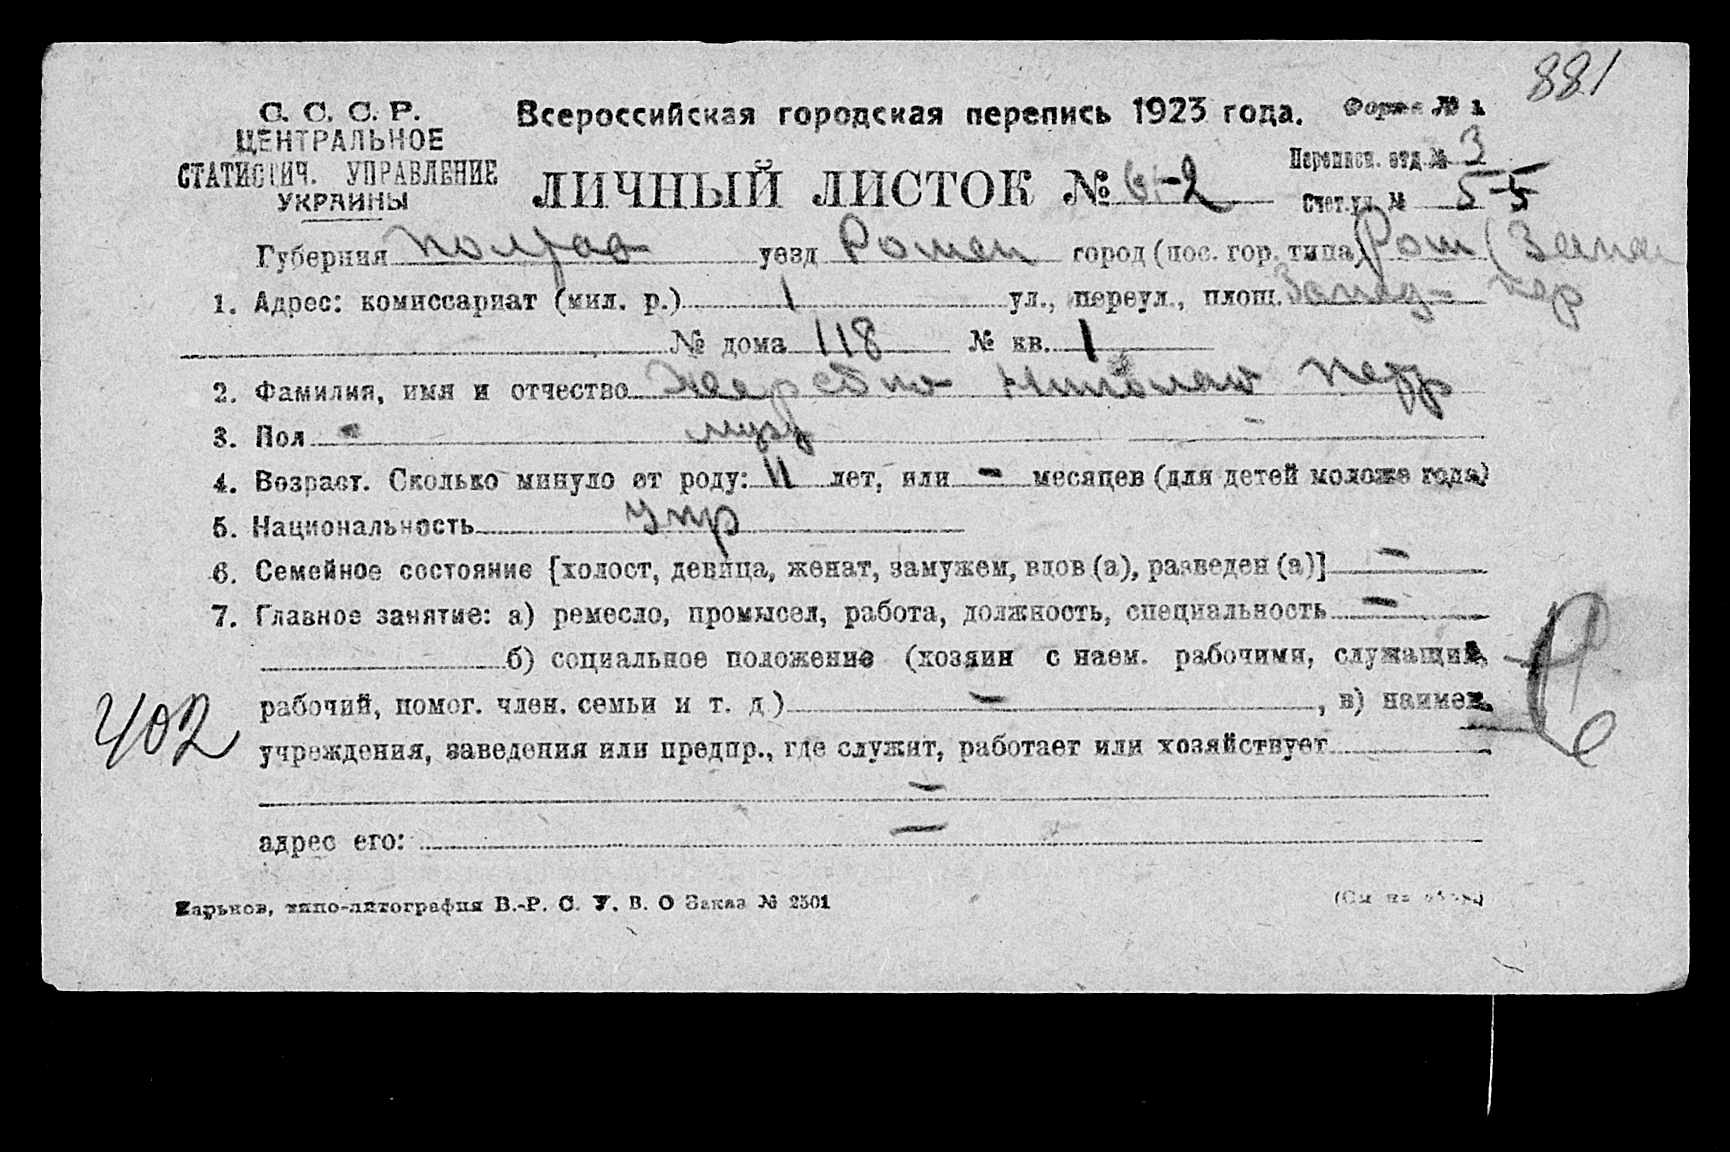 881
С. С. С. Р.
ЦЕНТРАЛЬНОЕ
СТАТИСТИЧ. УПРАВЛЕНИЕ
УКРАИНЫ
Всероссийская городская перепись 1923 года.
Форма № 1
ЛИЧНЫЙ ЛИСТОК № 6-2
Переписн. отд. № 3
Счет. уч. № 5-5
Губерния Полтав уезд Ромен город (пос. гор. типа) Ром
1. Адрес: комиссариат (мил. р.) 1 ул., переул., площ.
№ дома 118 № кв. 1
2. Фамилия, имя и отчество Николай Петр
3. Пол муж
4. Возраст. Сколько минуло от роду: 11 лет, или - месяцев (для детей моложе года)
5. Национальность Укр
6. Семейное состояние [холост, девица, женат, замужем, вдов (а), разведен (а)] —
7. Главное занятие: а) ремесло, промысел, работа, должность, специальность —
б) социальное положение (хозяин с наем. рабочими, служащий,
рабочий, помог. член. семьи и т. д) — , в) наимен.
402
учреждения, заведения или предпр., где служит, работает или хозяйствует
—
адрес его: —
Харьков, типо-литография В.-Р. С. У. В. О Заказ № 2501
(См на обор.)